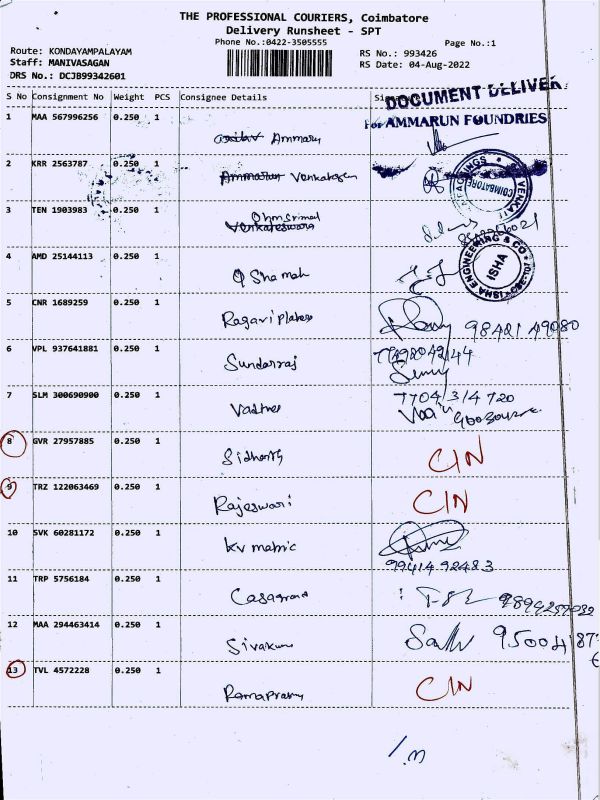 THE PROFESSIONAL COURIERS, Coimbatore
Delivery Runsheet - SPT
Phone No.:0422-3505555
Page No.:1
Route: KONDAYAMPALAYAM
RS No.: 993426
Staff: MANIVASAGAN
RS Date: 04-Aug-2022
DRS No.: DCJB99342601
S No Consignment No Weight PCS Consignee Details
DOCUMENT DELIVER
For AMMARUN FOUNDRIES
1 MAA 567996256 0.250 1
Ammaru
2 KRR 2563787 0.250 1
Venkatesan
COIMBATORE
3 TEN 1903983 0.250 1
Venkateswara
4 AMD 25144113 0.250 1
ISHA ENGINEERING & CO
ISHA
5 CNR 1689259 0.250 1
Ragavi plates
98421 49080
6 VPL 937641881 0.250 1
Sundarraj
7 SLM 300690900 0.250 1
7704314720
8 GVR 27957885 0.250 1
Sidharth
CIN
9 TRZ 122063469 0.250 1
Rajeswari
CIN
10 SVK 60281172 0.250 1
Kv matric
9941492483
11 TRP 5756184 0.250 1
Casagrand
12 MAA 294463414 0.250 1
Sivakum
13 TVL 4572228 0.250 1
CIN